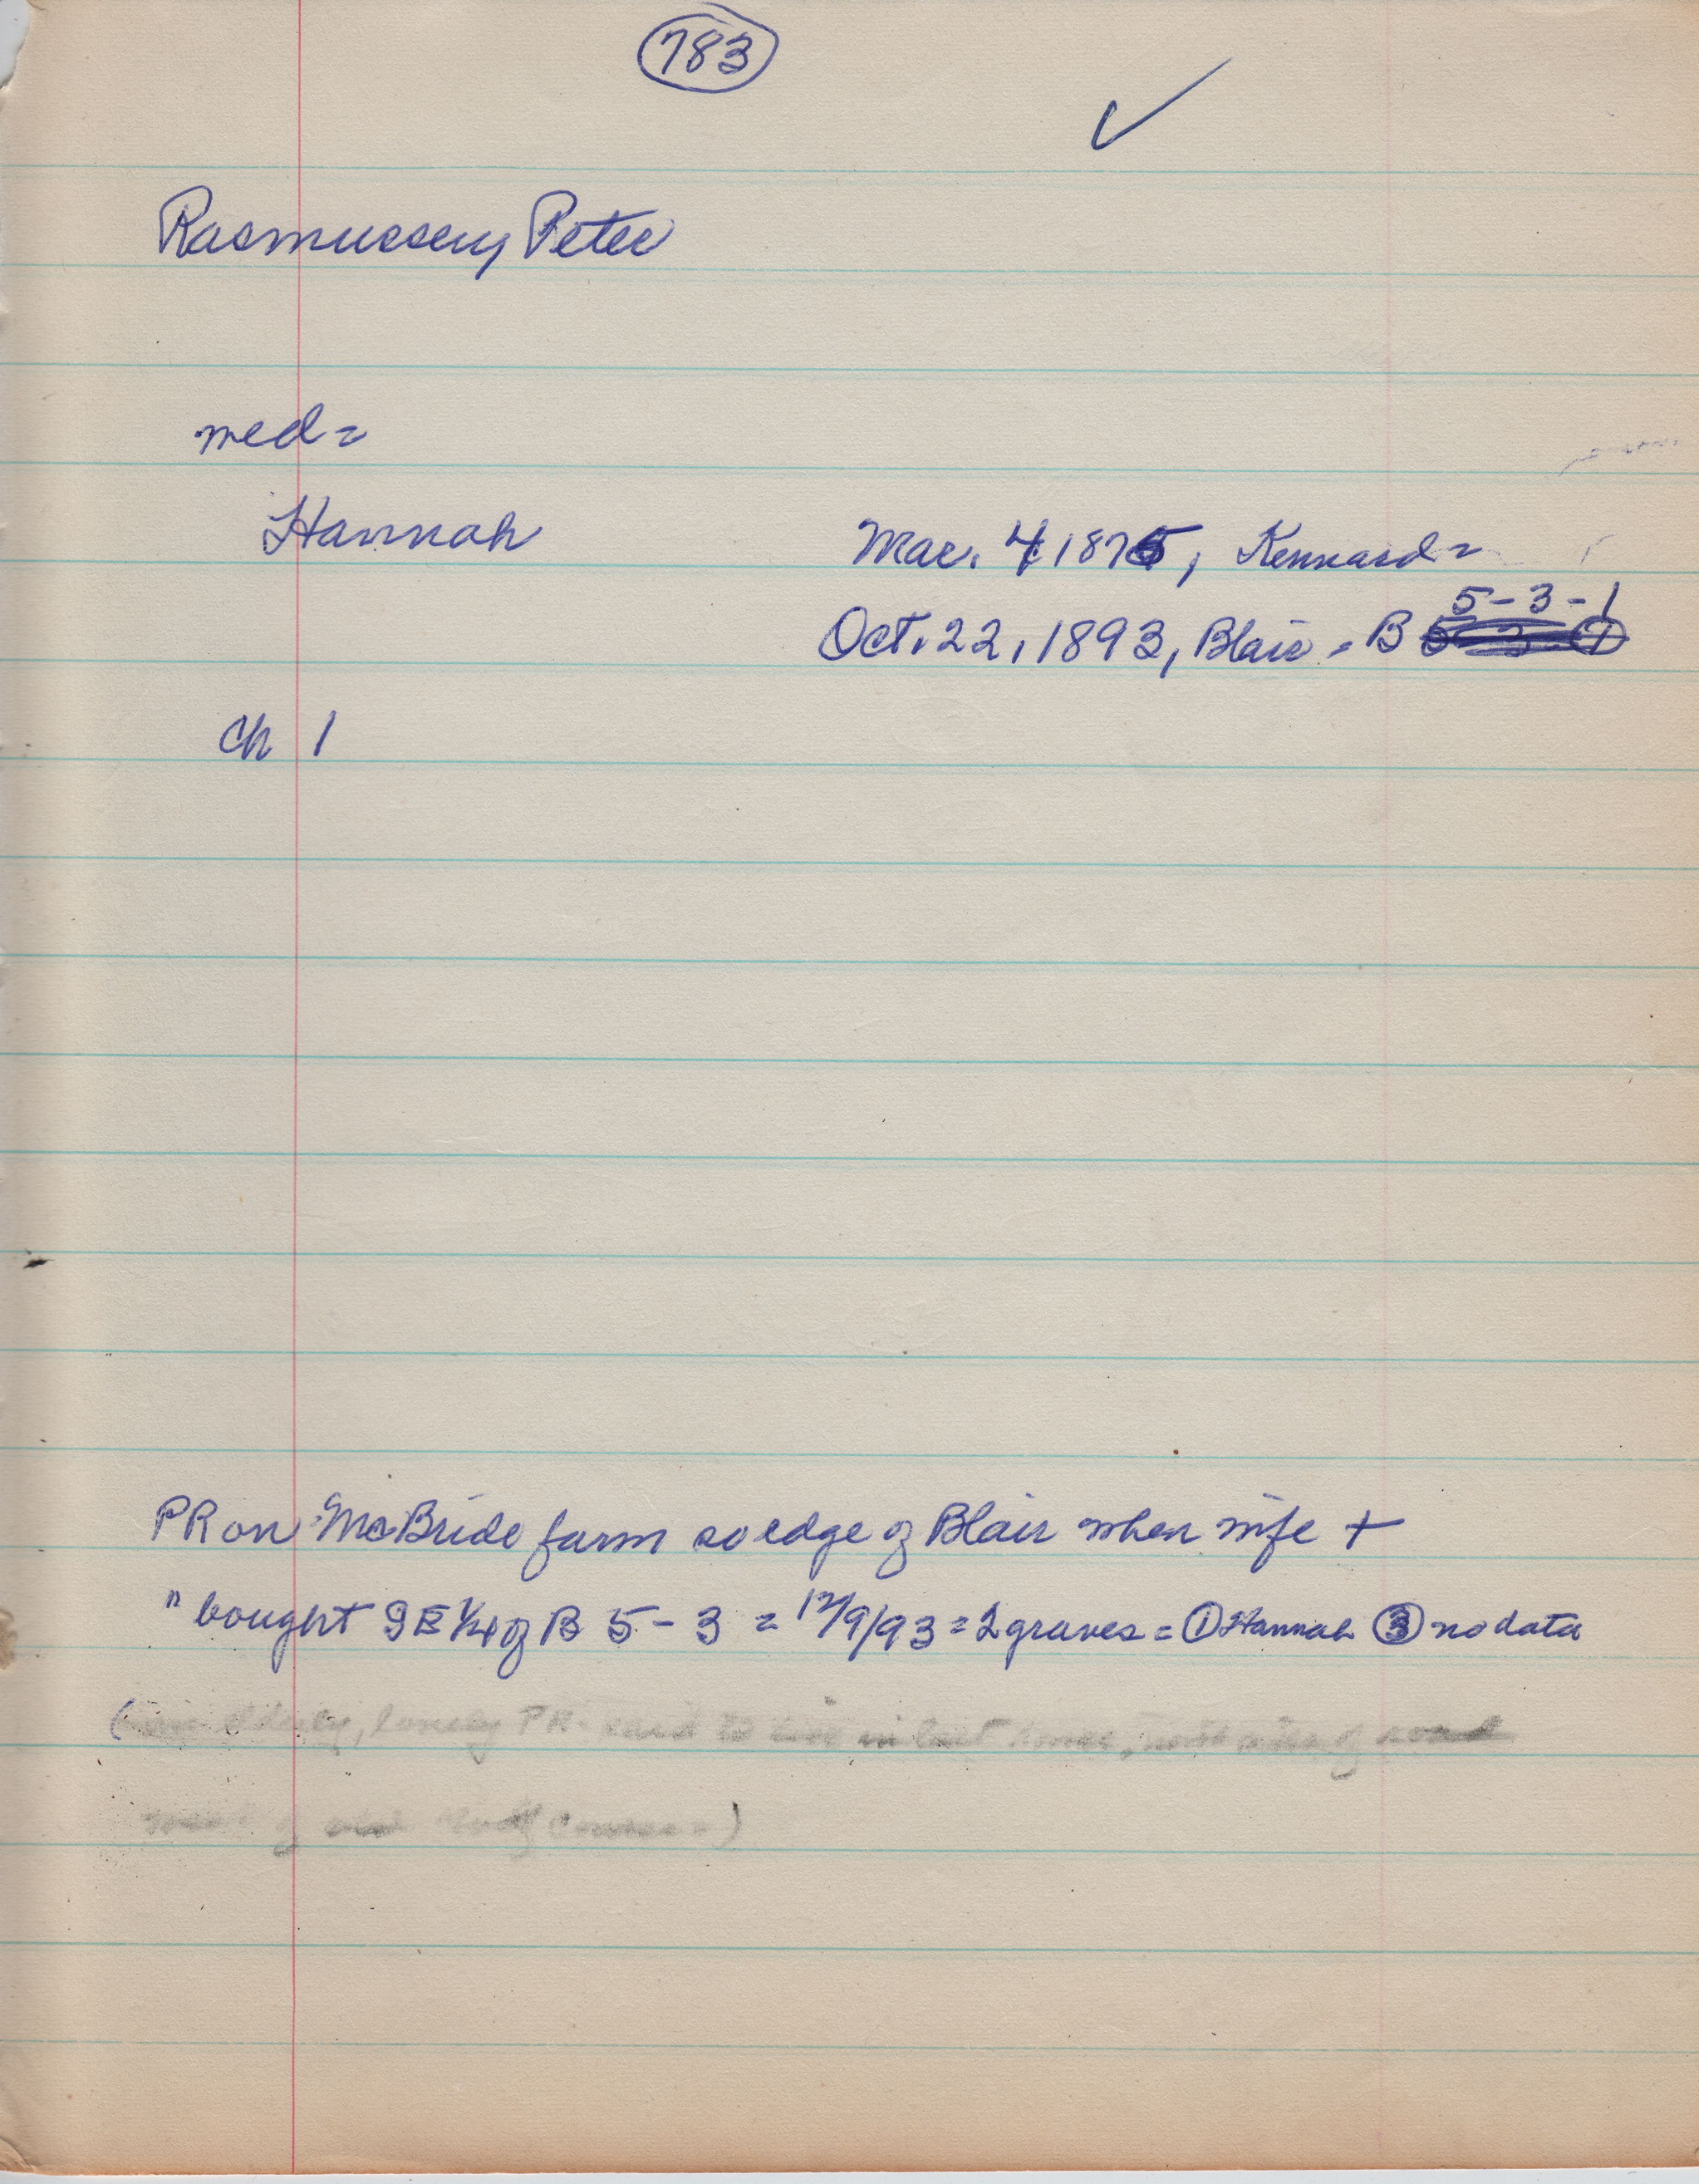 783
✓
Rasmussen, Peter
med=
Hannah
Mar. 4 1875, Kennard=
5-3-1
Oct. 22, 1893, Blair - B
Ch 1
PR on McBride farm so edge of Blair when wife +
" bought SE 1/4 of B 5-3 = 12/9/93 = 2 graves = ① Hannah ③ no data
( elderly, lonely PR. said to live in last
)